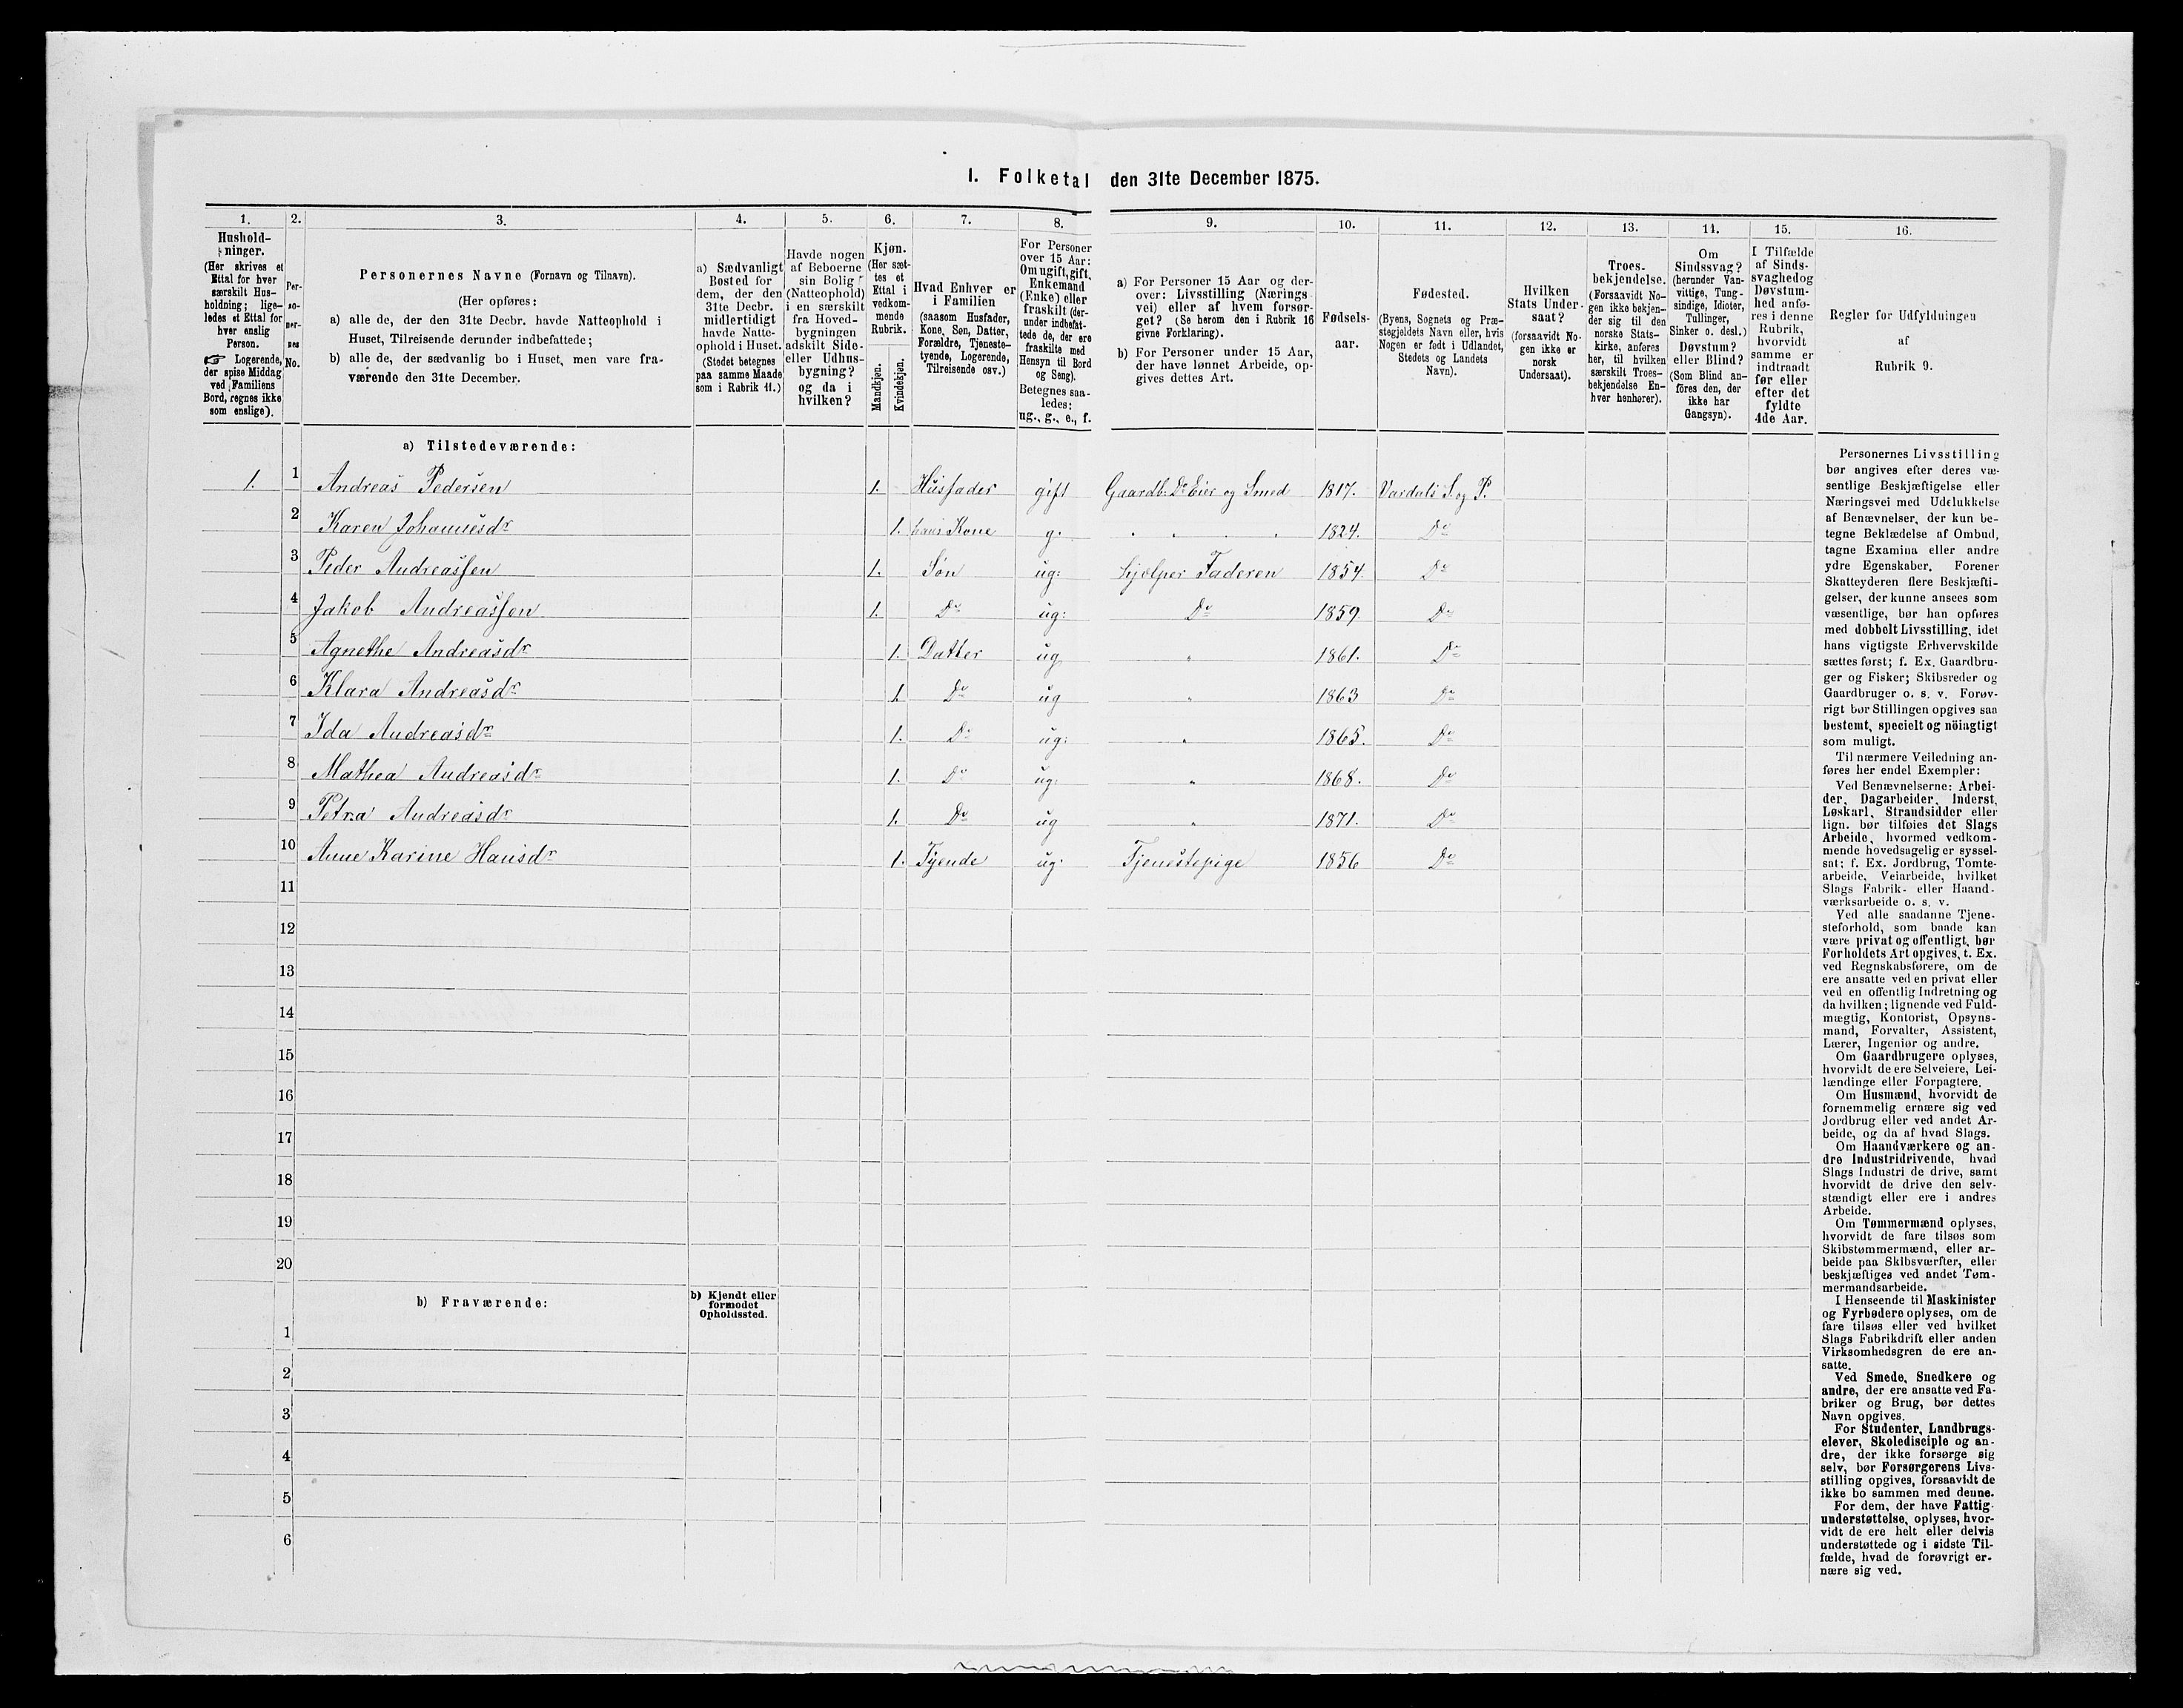 1. Folketal den 31te December 1875.
1. 2. 3. 4. 5. 6. 7. 8. 9. 10. 11. 12. 13. 14. 15. 16.
Hushold-
ninger.
(Her skrives et
Ettal for hver
særskilt Hus-
holdning; lige-
ledes et Ettal for
hver enslig
Person.
☞ Logerende,
der spise Middag
ved Familiens
Bord, regnes ikke
som enslige).
Per-
so-
ner-
nes
No.
Personernes Navne (Fornavn og Tilnavn).
(Her opføres:
a) alle de, der den 31te Decbr. havde Natteophold i
Huset, Tilreisende derunder indbefattede;
b) alle de, der sædvanlig bo i Huset, men vare fra-
værende den 31te December.
a) Sædvanligt
Bosted for
dem, der den
31te Decbr.
midlertidigt
havde Natte-
ophold i Huset.
(Stedet betegnes
paa samme Maade
som i Rubrik 11.)
Havde nogen
af Beboerne
sin Bolig
(Natteophold)
i en særskilt
fra Hoved-
bygningen
adskilt Side-
eller Udhus-
bygning?
og da i
hvilken?
Kjøn.
(Her sæt-
tes et
Ettal i
vedkom-
mende
Rubrik.
Mandkjøn.
Kvindekjøn.
Hvad Enhver er
i Familien
(saasom Husfader,
Kone, Søn, Datter,
Forældre, Tjeneste-
tyende, Logerende,
Tilreisende osv.)
For Personer
over 15 Aar:
Om ugift, gift,
Enkemand
(Enke) eller
fraskilt (der-
under indbefat-
tede de, der ere
fraskilte med
Hensyn til Bord
og Seng).
Betegnes saa-
ledes:
ug., g., e., f.
a) For Personer 15 Aar og der-
over: Livsstilling (Nærings-
vei) eller af hvem forsør-
get? (Se herom den i Rubrik 16
givne Forklaring).
b) For Personer under 15 Aar,
der have lønnet Arbeide, op-
gives dettes Art.
Fødsels-
aar.
Fødested.
(Byens, Sognets og Præ-
stegjeldets Navn eller, hvis
Nogen er født i Udlandet,
Stedets og Landets
Navn).
Hvilken
Stats Under-
saat?
(forsaavidt No-
gen ikke er
norsk
Undersaat).
Troes-
bekjendelse.
(Forsaavidt No-
gen ikke bekjen-
der sig til den
norske Stats-
kirke, anføres
her, til hvilken
særskilt Troes-
bekjendelse En-
hver henhører).
Om
Sindssvag?
(herunder Van-
vittige, Tung-
sindige, Idioter,
Tullinger,
Sinker o. desl.)
Døvstum?
eller Blind?
(Som Blind an-
føres den, der
ikke har
Gangsyn).
I Tilfælde
af Sinds-
svaghed og
Døvstum-
hed anfø-
res i denne
Rubrik,
hvorvidt
samme er
indtraadt
før eller
efter det
fyldte
4de Aar.
Regler for Udfyldningen
af
Rubrik 9.
a) Tilstedeværende:
1. 1 Andreas Pedersen 1. Husfader gift Gaardb: Do Eier og Smed 1817. Vardals S. og P.
2 Karen Johannesdr 1. hans Kone g. " " " " 1824. Do
3 Peder Andreassen 1. Søn ug: hjelper Faderen 1854. Do
4 Jakob Andreassen 1. Do ug: Do 1859. Do
5 Agnethe Andreasdr 1. Datter ug " 1861. Do
6 Klara Andreasdr 1. Do ug " 1863 Do
7 Ida Andreasdr 1. Do ug: " 1865. Do
8 Mathea Andreasdr 1. Do ug: " 1868. Do
9 Petra Andreasdr 1. Do ug " 1871. Do
10 Anne Karine Hansdr 1. Tyende ug: Tjenestepige 1856 Do
11
12
13
14
15
16
17
18
19
20
b) Fraværende:
b) Kjendt eller
formodet
Opholdssted.
1
2
3
4
5
6
Personernes Livsstilling
bør angives efter deres væ-
sentlige Beskjæftigelse eller
Næringsvei med Udelukkelse
af Benævnelser, der kun be-
tegne Beklædelse af Ombud,
tagne Examina eller andre
ydre Egenskaber. Forener
Skatteyderen flere Beskjæfti-
gelser, der kunne ansees som
væsentlige, bør han opføres
med dobbelt Livsstilling, idet
hans vigtigste Erhvervskilde
sættes først; f. Ex. Gaardbru-
ger og Fisker; Skibsreder og
Gaardbruger o. s. v. Forøv-
rigt bør Stillingen opgives saa
bestemt, specielt og nöiagtigt
som muligt.
Til nærmere Veiledning an-
føres her endel Exempler:
Ved Benævnelserne: Arbei-
der, Dagarbeider, Inderst,
Løskarl, Strandsidder eller
lign. bør tilføies det Slags
Arbeide, hvormed vedkom-
mende hovedsagelig er syssel-
sat; f. Ex. Jordbrug, Tomte-
arbeide, Veiarbeide, hvilket
Slags Fabrik- eller Haand-
værksarbeide o. s. v.
Ved alle saadanne Tjene-
steforhold, som baade kan
være privat og offentligt, bør
Forholdets Art opgives, t. Ex.
ved Regnskabsførere, om de
ere ansatte ved en privat eller
ved en offentlig Indretning og
da hvilken; lignende ved Fuld-
mægtig, Kontorist, Opsyns-
mand, Forvalter, Assistent,
Lærer, Ingeniør og andre.
Om Gaardbrugere oplyses,
hvorvidt de ere Selveiere, Lei-
lændinge eller Forpagtere.
Om Husmænd, hvorvidt de
fornemmelig ernære sig ved
Jordbrug eller ved andet Ar-
beide, og da af hvad Slags.
Om Haandværkere og an-
dre Industridrivende, hvad
Slags Industri de drive, samt
hvorvidt de drive den selv-
stændigt eller ere i andres
Arbeide.
Om Tømmermænd oplyses,
hvorvidt de fare tilsøs som
Skibstømmermænd, eller ar-
beide paa Skibsværfter, eller
beskjæftiges ved andet Tøm-
mermandsarbeide.
I Henseende til Maskinister
og Fyrbødere oplyses, om de
fare tilsøs eller ved hvilket
Slags Fabrikdrift eller anden
Virksomhedsgren de ere an-
satte.
Ved Smede, Snedkere og
andre, der ere ansatte ved Fa-
briker og Brug, bør dettes
Navn opgives.
For Studenter, Landbrugs-
elever, Skoledisciple og an-
dre, der ikke forsørge sig
selv, bør Forsørgerens Livs-
stilling opgives, forsaavidt de
ikke bo sammen med denne.
For dem, der have Fattig-
understøttelse, oplyses, hvor-
vidt de ere helt eller delvis
understøttede og i sidste Til-
fælde, hvad de forøvrigt er-
nære sig ved.